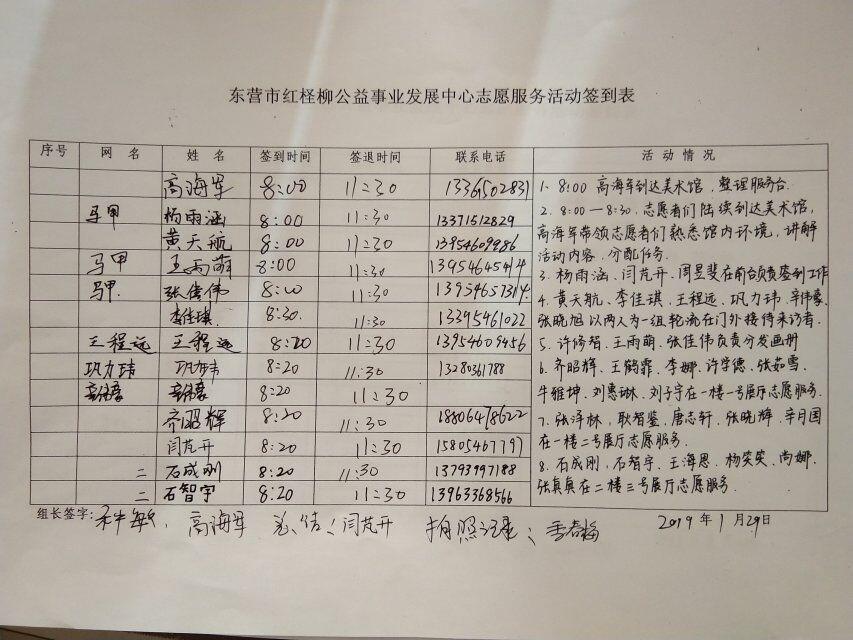 东营市红柽柳公益事业发展中心志愿服务活动签到表
序号 网 名 姓 名 签到时间 签退时间 联系电话 活 动 情 况
高海军 8:00 11:30 1336502831
马甲 杨雨涵 8:00 11:30 13371512829
黄天航 8:00 11:30 13954609986
马甲 王雨萌 8:00 11:30
马甲. 张佳伟 8:00 11:30
李佳琪 8:30. 11:30 13395461022
王程远 王程远 8:20 11:30 13954609456
巩力玮 巩力玮 8:20 11:30 13280361788
8:20 11:30
齐昭辉 8:20 11:30 18806478622
闫芃开 8:20 11:30 15805467797
二 石成刚 8:20 11:30 13793997188
二 石智宇 8:20 11:30 13963368566
1. 8:00 高海军到达美术馆,整理服务台.
2. 8:00—8:30,志愿者们陆续到达美术馆,
高海军带领志愿者们熟悉馆内环境,讲解
活动内容,分配任务.
3. 杨雨涵、闫芃开、周昱斐在前台负责签到工作
4. 黄天航、李佳琪、王程远、巩力玮、辛伟豪、
张晓旭以两人为一组轮流在门外接待来访者.
5. 许修智、王雨萌、张佳伟负责分发画册
6. 齐昭辉、王鹤霏、李娜、许学德、张茹雪、
牛雅坤、刘惠琳、刘子宇在一楼一号展厅志愿服务.
7. 张泽林,耿智鉴,唐志轩、张晓辉、辛月国
在一楼二号展厅志愿服务.
8. 石成刚、石智宇、王海恩、杨笑笑、尚娜、
张真真在二楼三号展厅志愿服务.
组长签字: 高海军 总结:闫芃开 拍照记录:季春梅
2019年1月29日